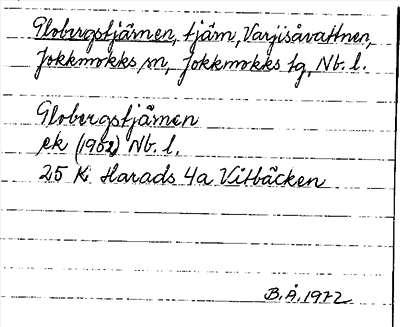 Globergstjärnen, tjärn, Varjisåvattnen,
Jokkmokks sn, Jokkmokks tg, Nb. l.
Globergstjärnen
ek (1962) Nb. l.
25 K Harads 4a Vitbäcken
B.Å. 1972